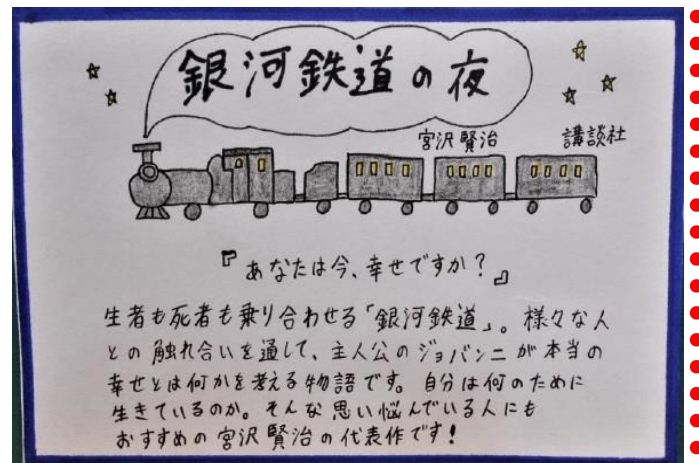 銀河鉄道の夜
宮沢賢治 講談社
『あなたは今、幸せですか?』
生者も死者も乗り合わせる「銀河鉄道」。様々な人
との触れ合いを通して、主人公のジョバンニが本当の
幸せとは何かを考える物語です。自分は何のために
生きているのか。そんな思い悩んでいる人にも
おすすめの宮沢賢治の代表作です!